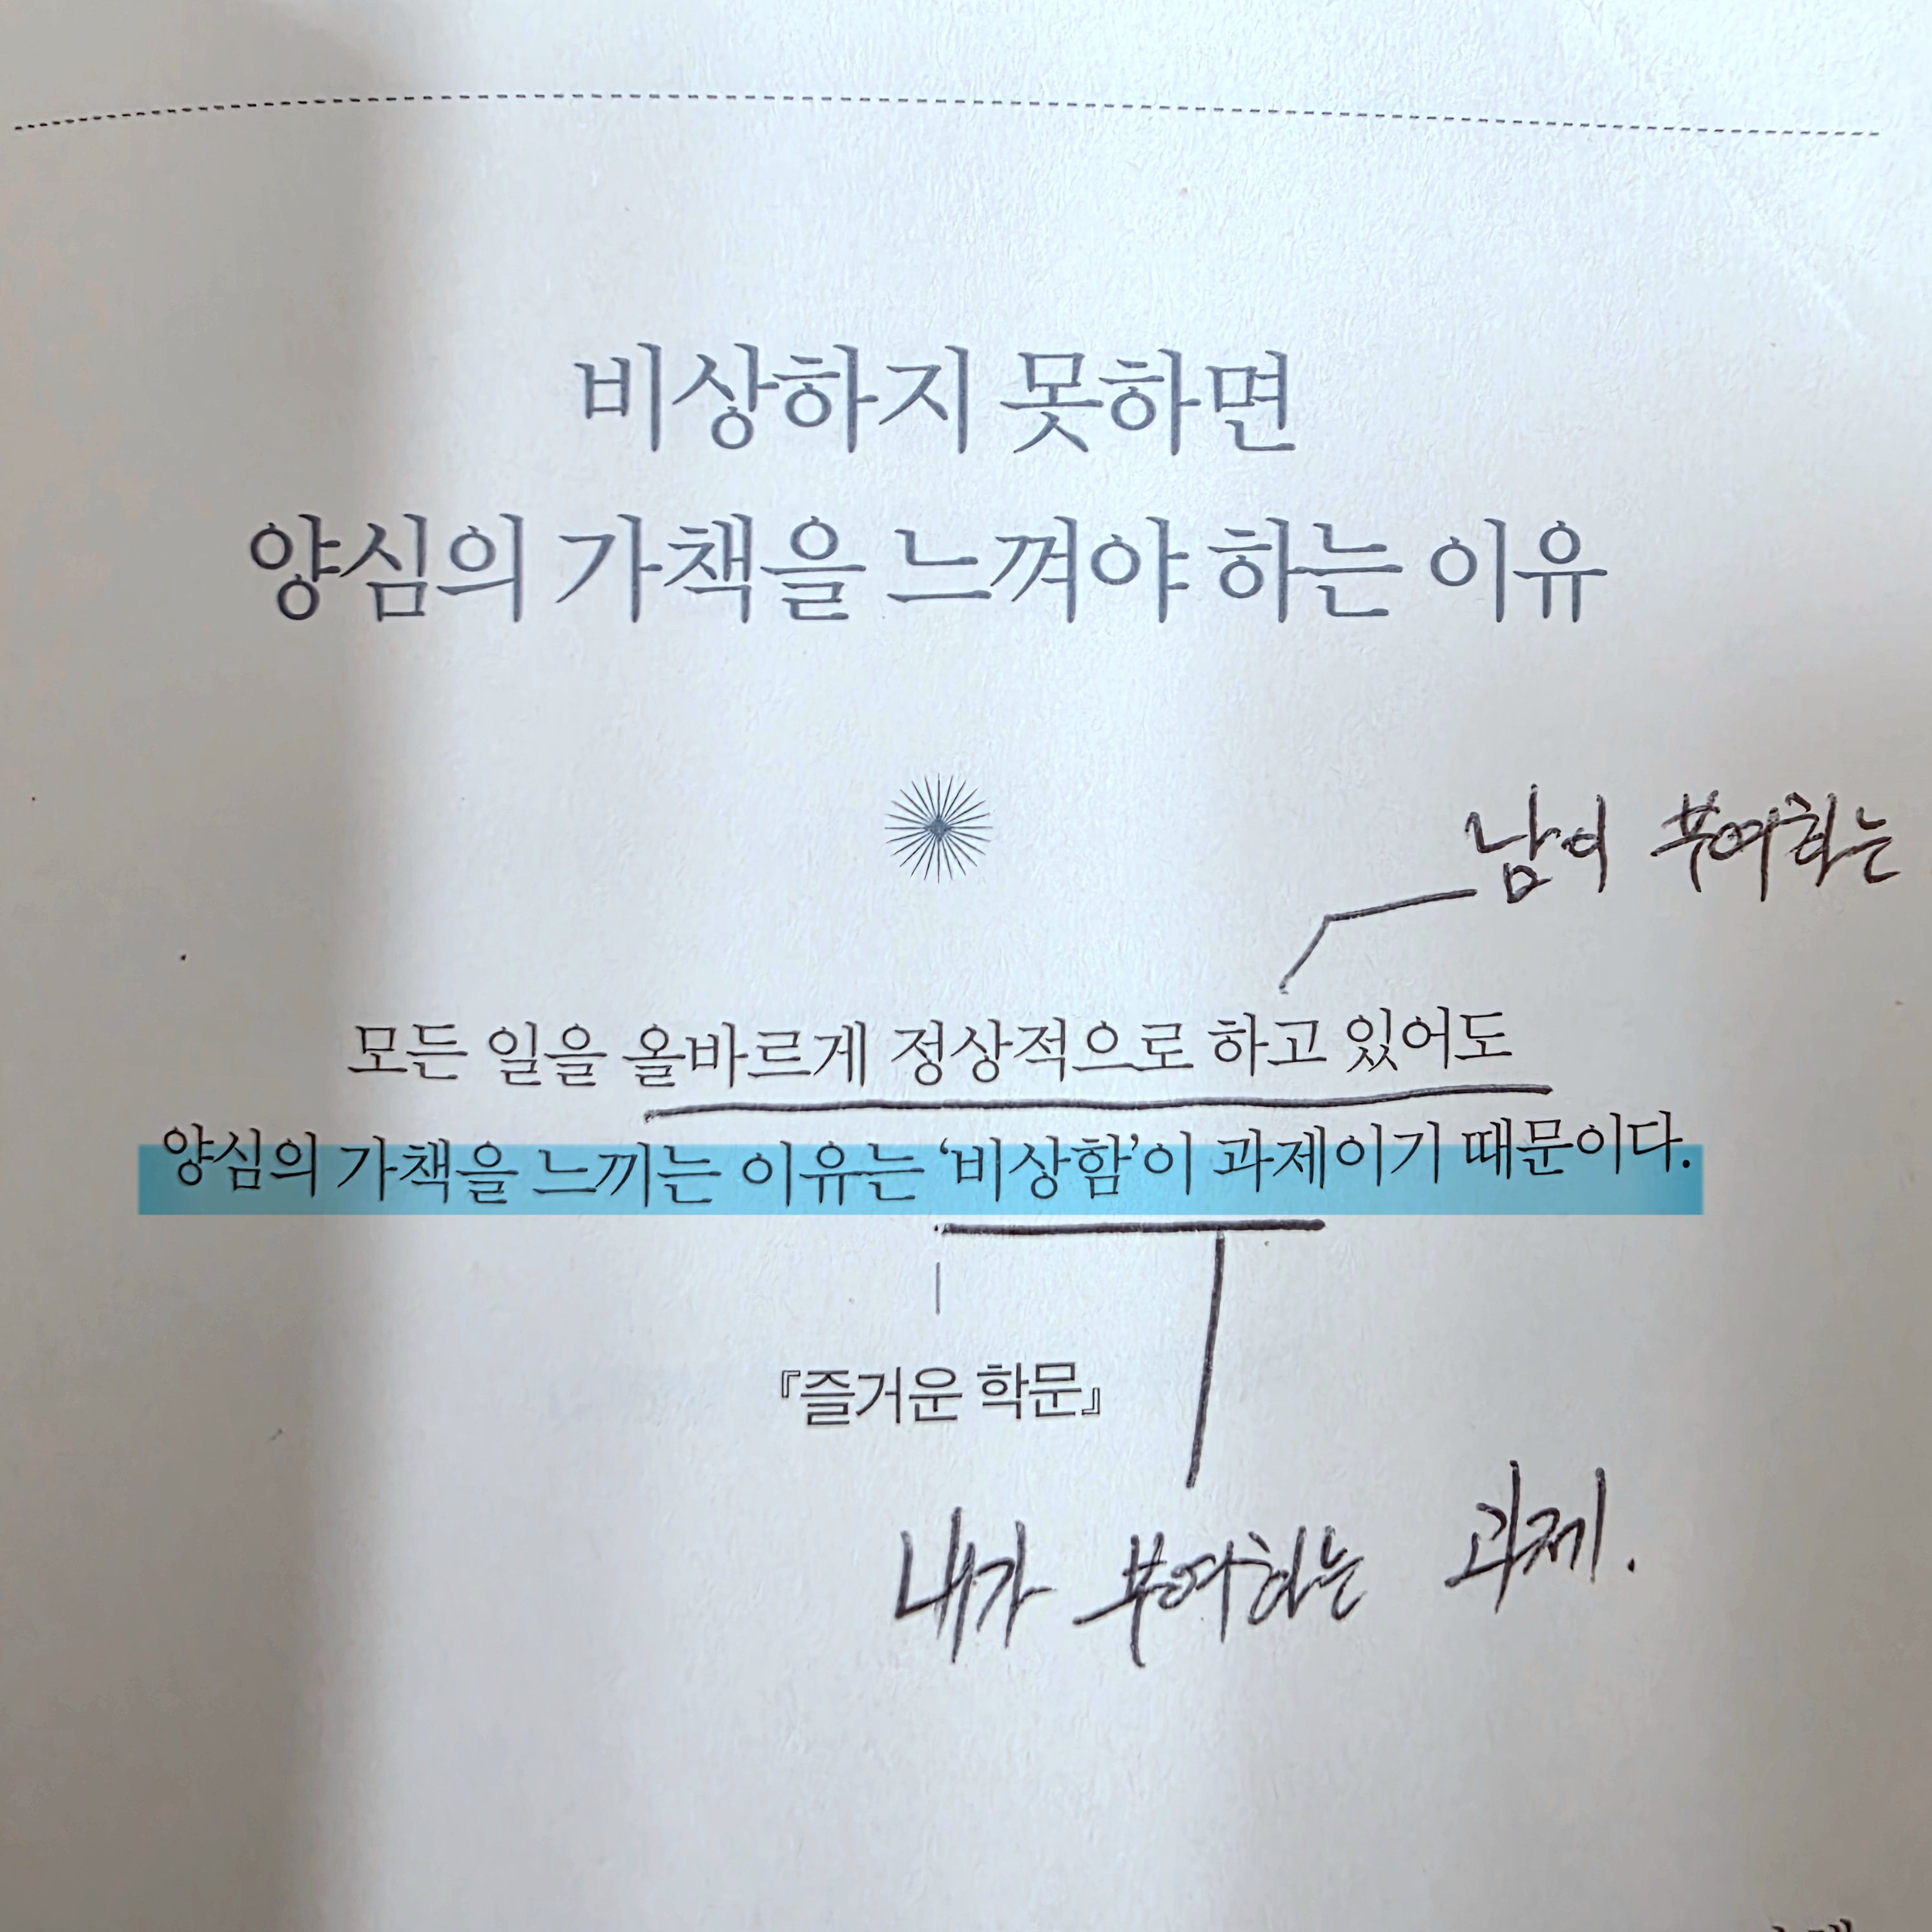 비상하지 못하면
양심의 가책을 느껴야 하는 이유
남이 부여하는
모든 일을 올바르게 정상적으로 하고 있어도
양심의 가책을 느끼는 이유는 ‘비상함’이 과제이기 때문이다.
『즐거운 학문』
내가 부여하는 과제.